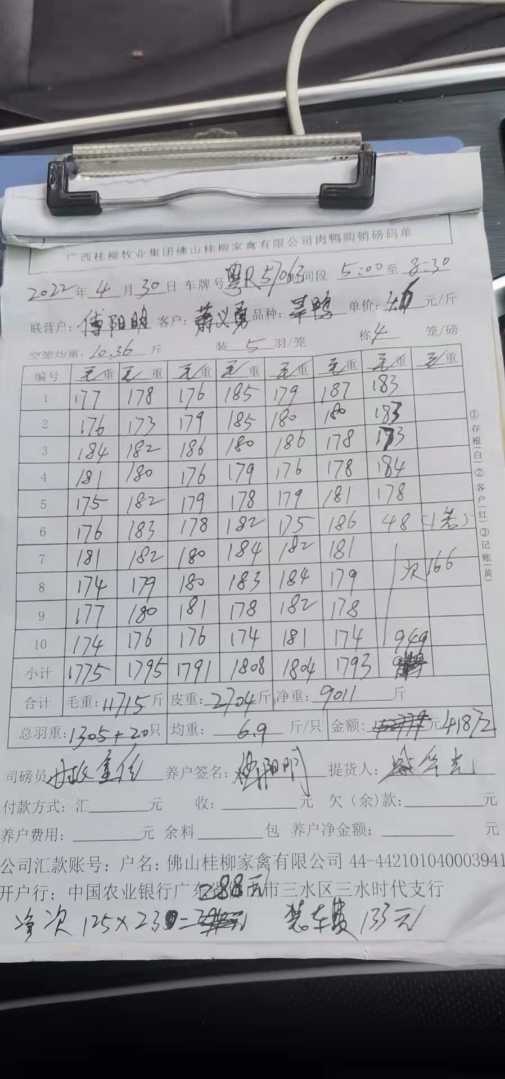 广西桂柳牧业集团佛山桂柳家禽有限公司肉鸭购销磅码单
2022年 4 月 30 日 车牌号 粤R57063 时间段 5:00 至 8:30
联营户: 傅阳明 客户: 萧义勇 品种: 单价: 元/斤
空笼均重: 10.36 斤 装 5 羽/笼 称 4 笼/磅
编号 毛重 毛重 毛重 毛重 毛重 毛重 毛重 毛重
1 177 178 176 185 179 187 183
2 176 173 179 185 180 180 183
3 184 182 186 180 186 178 173
4 181 180 176 179 176 178 184
5 175 182 179 178 179 181 178
6 176 183 178 182 175 186 48 (1笼)
7 181 182 180 184 182 181
8 174 179 180 183 184 179 次166
9 177 180 181 178 182 178
10 174 176 176 174 181 174 949
小计 1775 1795 1791 1808 1804 1793
合计 毛重: 11715 斤 皮重: 2704 斤 净重: 9011 斤
总羽重: 1305+20 只 均重: 6.9 斤/只 金额: 元 41872
①存根(白)②客户(红)③记账(黄)
司磅员 养户签名: 傅阳明 提货人:
付款方式: 汇 元 收: 元 欠(余)款: 元
养户费用: 元 余料 包 养户净金额: 元
公司汇款账号: 户名: 佛山桂柳家禽有限公司 44-442101040003941
开户行: 中国农业银行广东 市三水区三水时代支行
288元
净次 125×23 = 装车费 133元